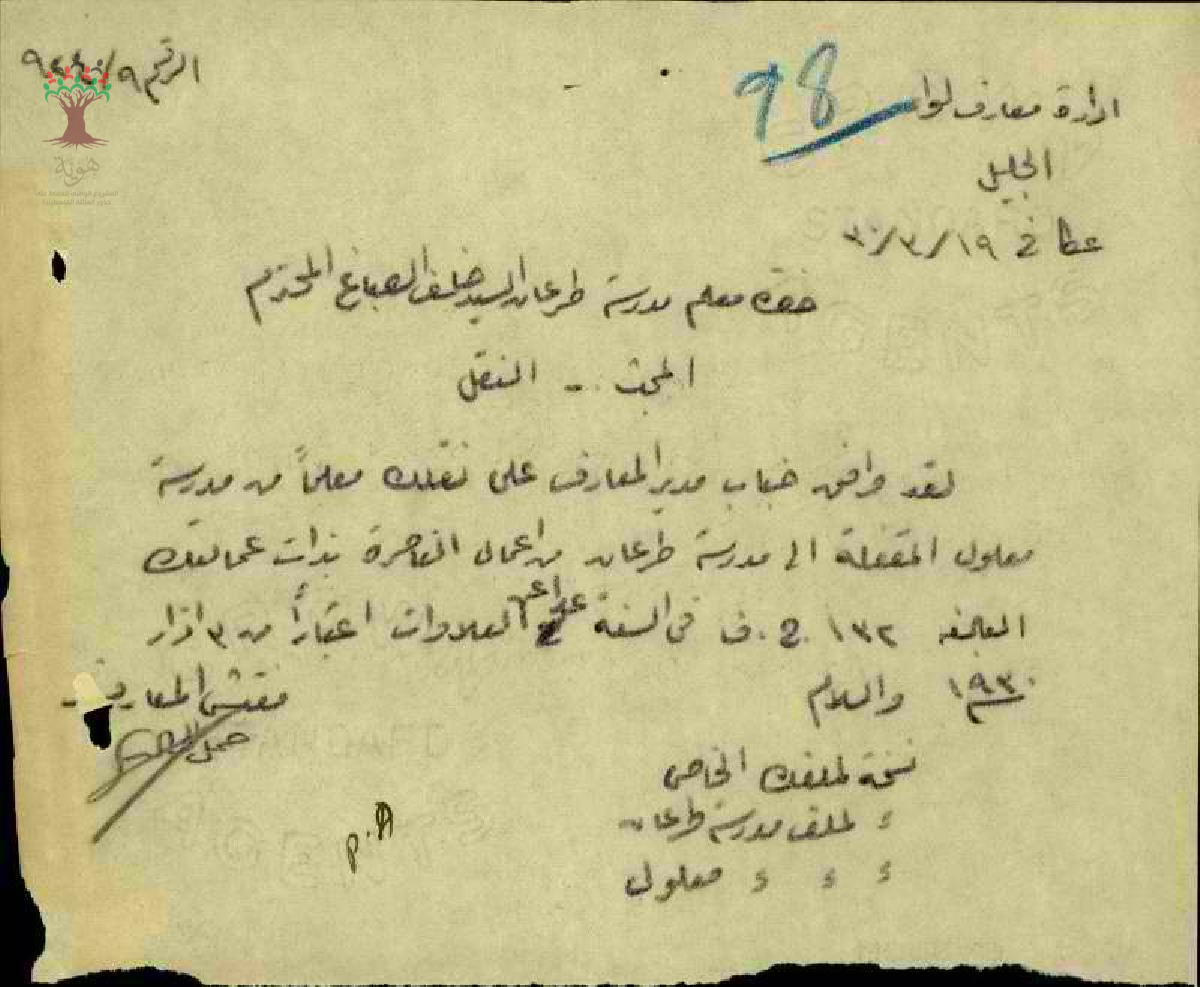 الرقم ٩/٩٢٤٠
98
ادارة معارف لواء
الجليل
عكا في ١٩/٣/٣٠
حضرة معلم مدرسة طرعان السيد خلف الصباغ المحترم
المبحث - النقل
لقد وافق جناب مدير المعارف على نقلك معلماً من مدرسة
معلول المقفلة الى مدرسة طرعان من اعمال الناصرة بذات عمالتك
البالغة ١٣٢ ج. ف في السنة عدا عن العلاوات اعتباراً من ٣ اذار
١٩٣٠ والسلام
مفتش المعارف
نسخة لملفك الخاص
" لملف مدرسة طرعان
" " " معلول
P.A
هوية